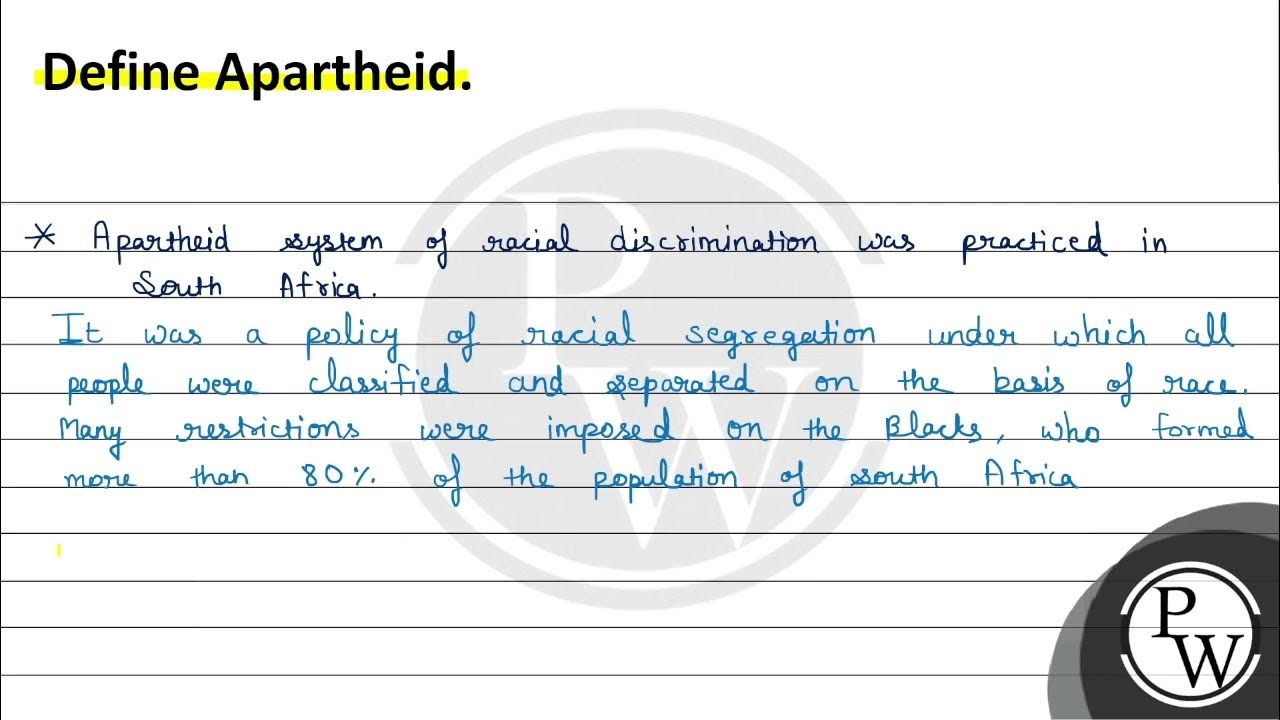 Define Apartheid.
* Apartheid system of racial discrimination was practiced in
South Africa.
It was a policy of racial segregation under which all
people were classified and separated on the basis of race.
Many restrictions were imposed on the Blacks, who formed
more than 80% of the population of south Africa
PW
PW